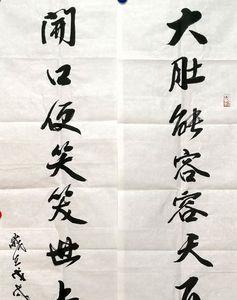 大肚能容容天下
開口便笑笑世上